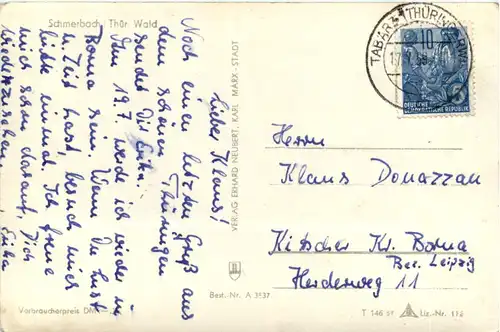 Schmerbach / Thür. Wald
Lieber Klaus!
Noch einen letzten Gruß aus
dem schönen Thüringen
sendet Dir Erika.
Am 19.7. werde ich wieder in
Borna sein. Wenn Du Lust
u. Zeit hast, besuch mich
bitte einmal. Ich freue
mich schon darauf, Dich
wiederzusehen. Erika
Verbraucherpreis DM
VERLAG ERHARD NEUBERT, KARL-MARX-STADT
Best.-Nr. A 3537
TABARZ (THÜRINGER
10
DEUTSCHE
DEMOKRATISCHE REPUBLIK
Herrn
Klaus Donazzan
Kitscher Kr. Borna
Bez. Leipzig
Herderweg 11
T 146 57 Liz.-Nr. 116